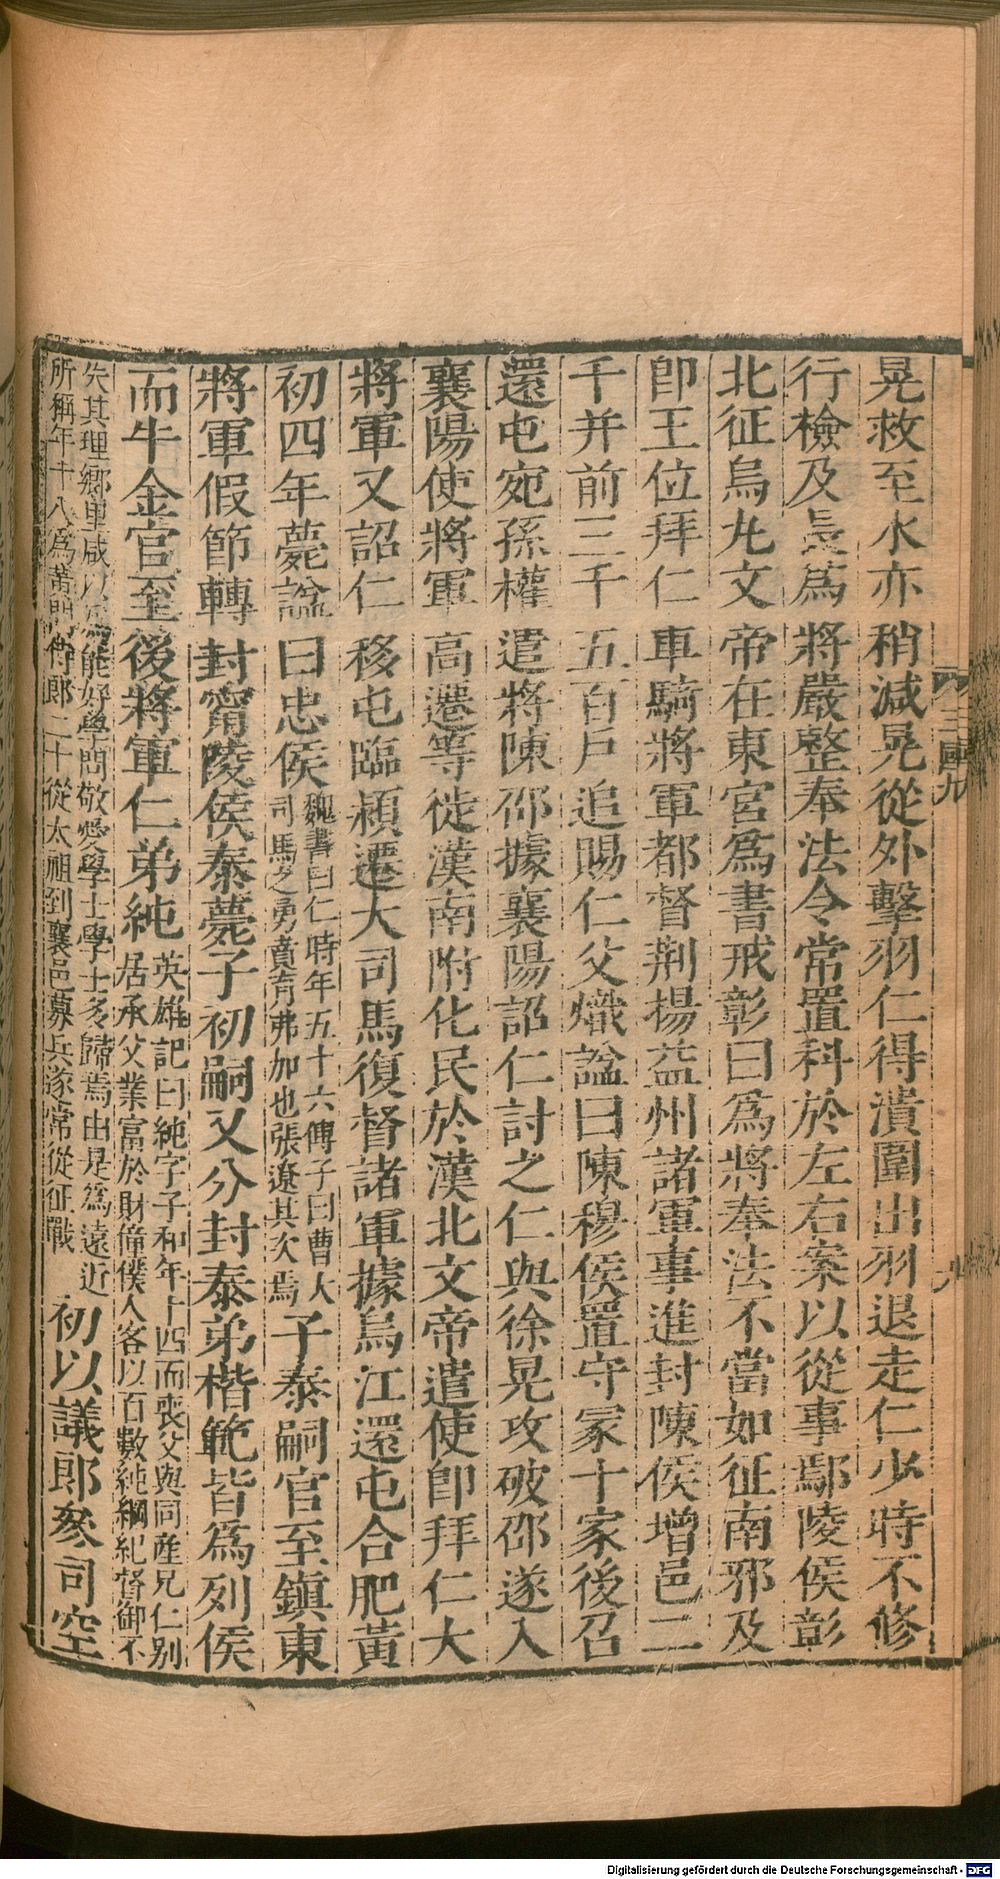 晃救至水亦稍減晃從外擊羽仁得潰圍出羽退走仁少時不修
行檢及長爲將嚴整奉法令常置科於左右案以從事鄢陵侯彰
北征烏丸文帝在東宮爲書戒彰曰爲將奉法不當如征南邪及
卽王位拜仁車騎將軍都督荆揚益州諸軍事進封陳侯增邑二
千并前三千五百戶追賜仁父熾諡曰陳穆侯置守冢十家後召
還屯宛孫權遣將陳邵據襄陽詔仁討之仁與徐晃攻破邵遂入
襄陽使將軍高遷等徙漢南附化民於漢北文帝遣使卽拜仁大
將軍又詔仁移屯臨潁遷大司馬復督諸軍據烏江還屯合肥黃
初四年薨諡曰忠侯
魏書曰仁時年五十六傅子曰曹大
司馬之勇賁育弗加也張遼其次焉
子泰嗣官至鎭東
將軍假節轉封甯陵侯泰薨子初嗣又分封泰弟楷範皆爲列侯
而牛金官至後將軍仁弟純
英雄記曰純字子和年十四而喪父與同產兄仁别
居承父業富於財僮僕人客以百數純綱紀督御不
失其理鄉里咸以爲能好學問敬愛學士學士多歸焉由是爲遠近
所稱年十八爲黃門侍郎二十從太祖到襄邑募兵遂常從征戰
初以議郎參司空
三國九
九
Digitalisierung gefördert durch die Deutsche Forschungsgemeinschaft - DFG